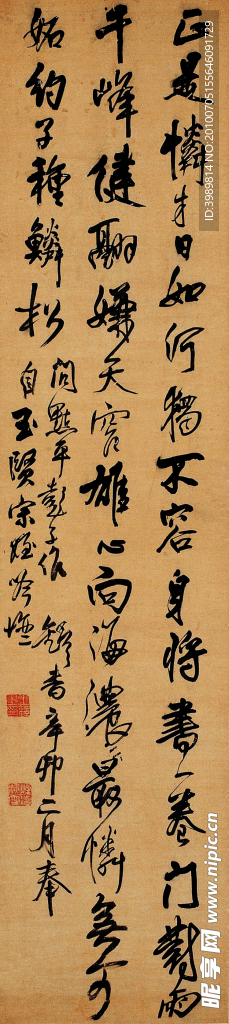 正是憐才日如何獨不容身將書一卷門對雨
千峰健翮嫌天窄雄心向海濃最憐無可
妬約子種鱗松
問點平彭子作 顏書辛卯二月奉
自玉賢宗姪
昵享网 www.nipic.cn
ID:3989814 NO:20100705155646091729